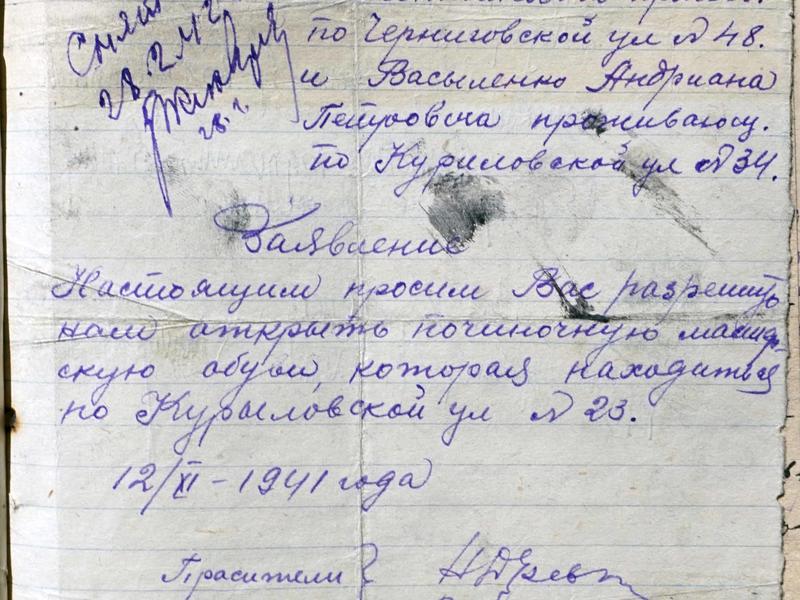 по Черниговской ул № 48.
и Васыленко Андриана
Петровича проживающ.
по Куриловской ул № 34.
28.2 42
28. г.
Заявление
Настоящим просим Вас разрешить
нам открыть починочную мастер-
скую обуви, которая находиться
по Курыловской ул № 23.
12/XI - 1941 года
Просители